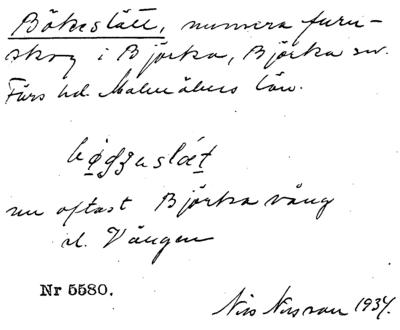 Bökeslätt, numera furu-
skog i Björka, Björka sn.
Färs hd. Malmöhus län.
nu oftast Björka vång
el. Vången
Nr 5580.
Nils Nilsson 1934.